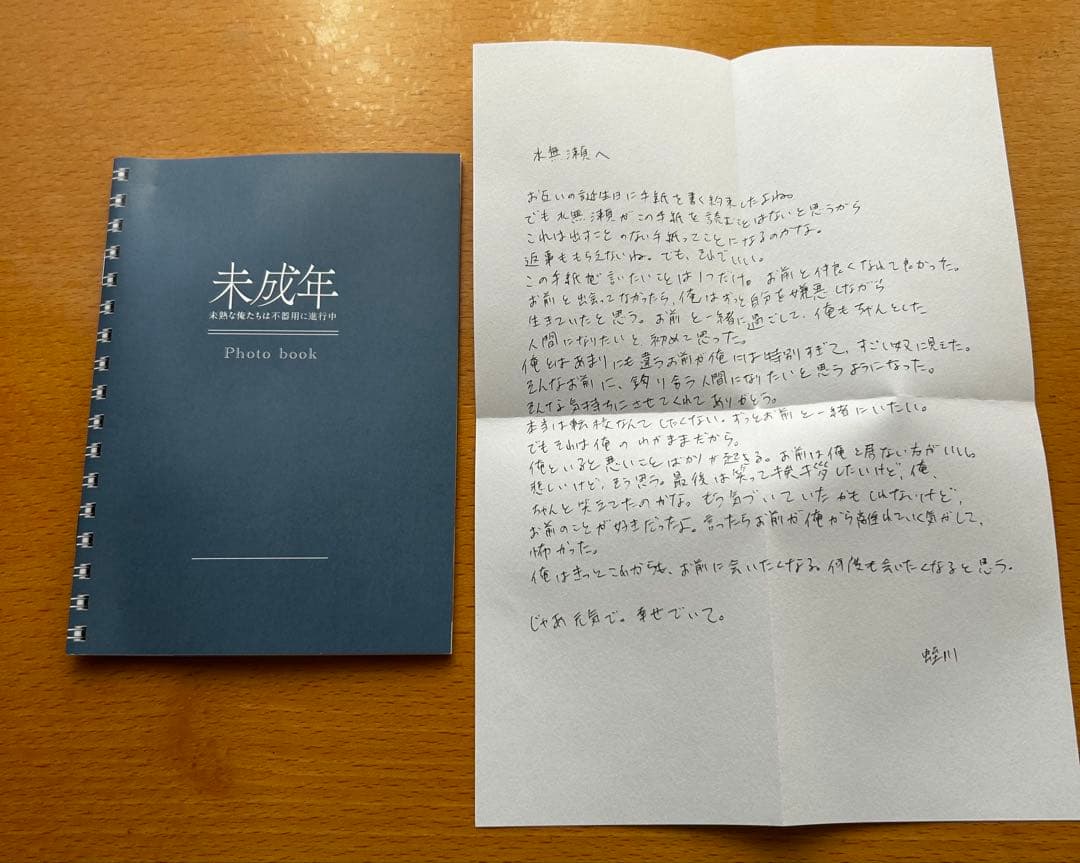 未成年
未熟な俺たちは不器用に進行中
Photo book
水無瀬へ
お互いの誕生日に手紙を書く約束したよね。
でも水無瀬がこの手紙を読むことはないと思うから
これは出すことのない手紙ってことになるのかな。
返事ももらえないね。でも、それでいい。
この手紙で言いたいことは1つだけ。お前と仲良くなれて良かった。
お前と出会ってなかったら、俺はずっと自分を嫌悪しながら
生きていたと思う。お前と一緒に過ごして、俺もちゃんとした
人間になりたいと初めて思った。
俺とはあまりにも違うお前が俺には特別すぎて、すごい奴に見えた。
そんなお前に、釣り合う人間になりたいと思うようになった。
そんな気持ちにさせてくれてありがとう。
本当は転校なんてしたくない。ずっとお前と一緒にいたい。
でもそれは俺のわがままだから。
俺といると悪いことばかりが起きる。お前は俺と居ない方がいい。
悲しいけど、そう思う。最後は笑って挨拶したいけど、俺、
ちゃんと笑えてたのかな。もう気づいていたかもしれないけど、
お前のことが好きだったよ。言ったらお前が俺から離れていく気がして、
怖かった。
俺はきっとこれからも、お前に会いたくなる。何度も会いたくなると思う。
じゃあ元気で。幸せでいて。
蛭川